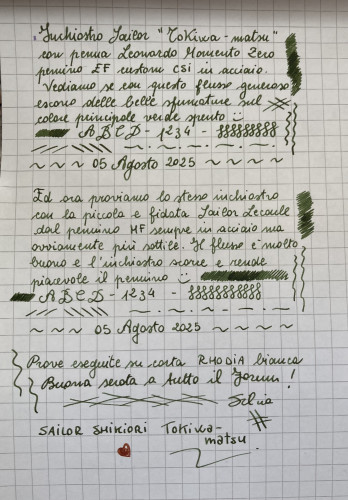 Inchiostro Sailor "Tokiwa-matsu"
con penna Leonardo Momento Zero
pennino EF custom CSI in acciaio.
Vediamo se con questo flusso generoso
escono delle belle sfumature sul
colore principale verde spento
A B C D - 1234 -
05 Agosto 2025
Ed ora proviamo lo stesso inchiostro
con la piccola e fidata Sailor Lecoule
dal pennino MF sempre in acciaio ma
ovviamente più sottile. Il flusso è molto
buono e l'inchiostro scorre e rende
piacevole il pennino
A B C D - 1234 -
05 Agosto 2025
Prove eseguite su carta RHODIA bianca
Buona serata a tutto il Forum!
Silvia
SAILOR SHIKIORI TOKIWA-
matsu